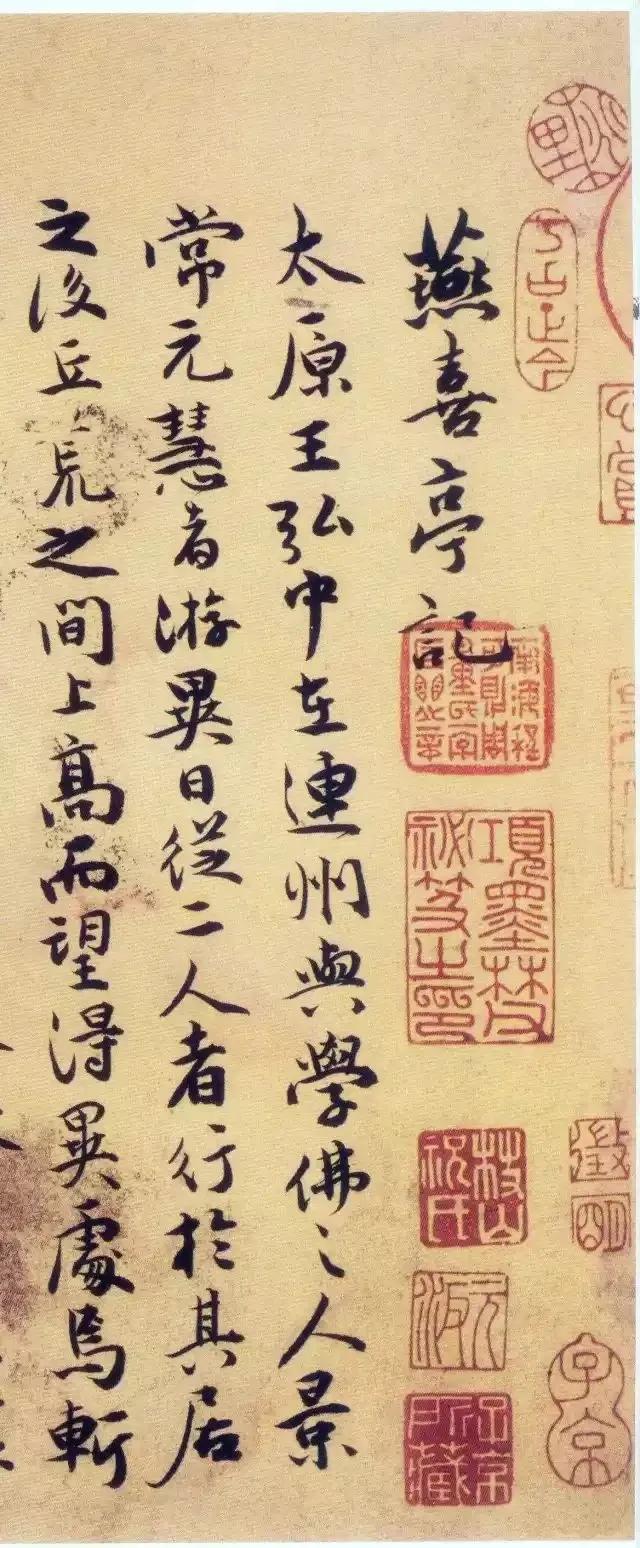 燕喜亭記
太原王弘中在連州與學佛之人景
常元慧者游異日從二人者行於其居
之後丘荒之間上高而望得異處焉斬
項墨林父
秘笈之印
徵明
子京